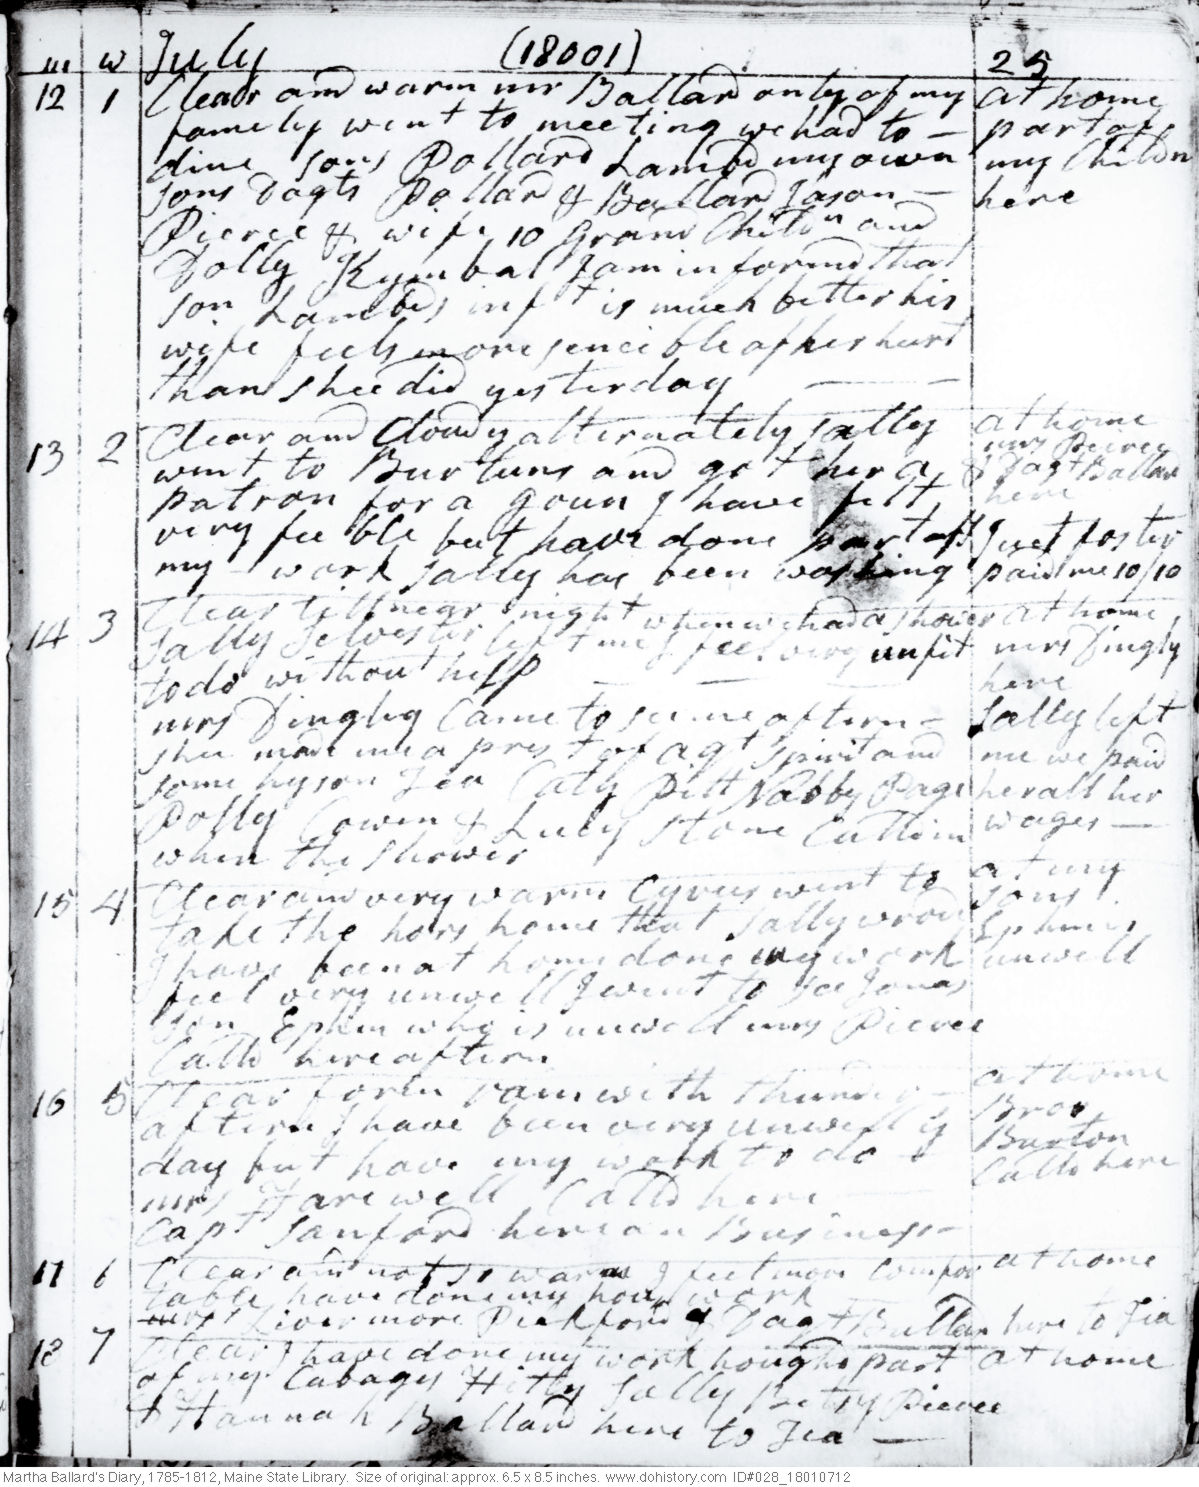 m w July (18001) 25
12 1 Clear and warm mr Ballard only of my
famely went to meeting we had to –
dine sons Pollard Lambd my own
sons Dagts Pollard & Ballard Jason –
Pierce & wife 10 Grand Childn and
Dolly Kymbal I am informd that
son Lambds inft is much better his
wife feels more sencible of her hurt
than shee did yesterday
at home
part of
my Childn
here
13 2 Clear and Cloudy alternately Sally
went to Burtuns and got her a
patron for a goun I have felt
very feeble but have done part off
my work Sally has been washing
at home
mrs Pierce
& Dagt Ballard
here
Just foster
paid me 10/10
14 3 Clear till near night when we had a shower
Sally Selvester left me I feel very unfit
to do without help
mrs Dingley Came to see me aftern –
shee made me a prest of a qt spirit and
some hyson Tea Caty Pitt Nabby Page
Polly Cowen & Lucy Stone Calld in
when the shower
at home
mrs Dingly
here
Sally left
me we paid
her all her
wages –
15 4 Clear and very warm Cyrus went to
take the hors home that Sally
I have been at home done my work
feel very unwell I went to see Jonas
son Ephm who is unwell mrs Pierce
Calld here aftern
at my
sons
Ephm is
unwell
16 5 Clear foren rain with thunder –
aftern I have been very unwell ys
day but have my work to do
mrs Farewell Calld here
Capt Sanford here on Business –
at home
Bror
Burton
Calld here
17 6 Clear and not so warm I feel more Comfor
table have done my hous work
mrs Livermore Pickford & Dagt Ballard here to Tea
at home
18 7 Clear I have done my work hough'd part
of my Cabages Hitty Sally Betsy Pierce
& Hannah Ballard here to Tea –
at home
Martha Ballard's Diary, 1785-1812, Maine State Library. Size of original: approx. 6.5 x 8.5 inches. www.dohistory.com ID#028_18010712